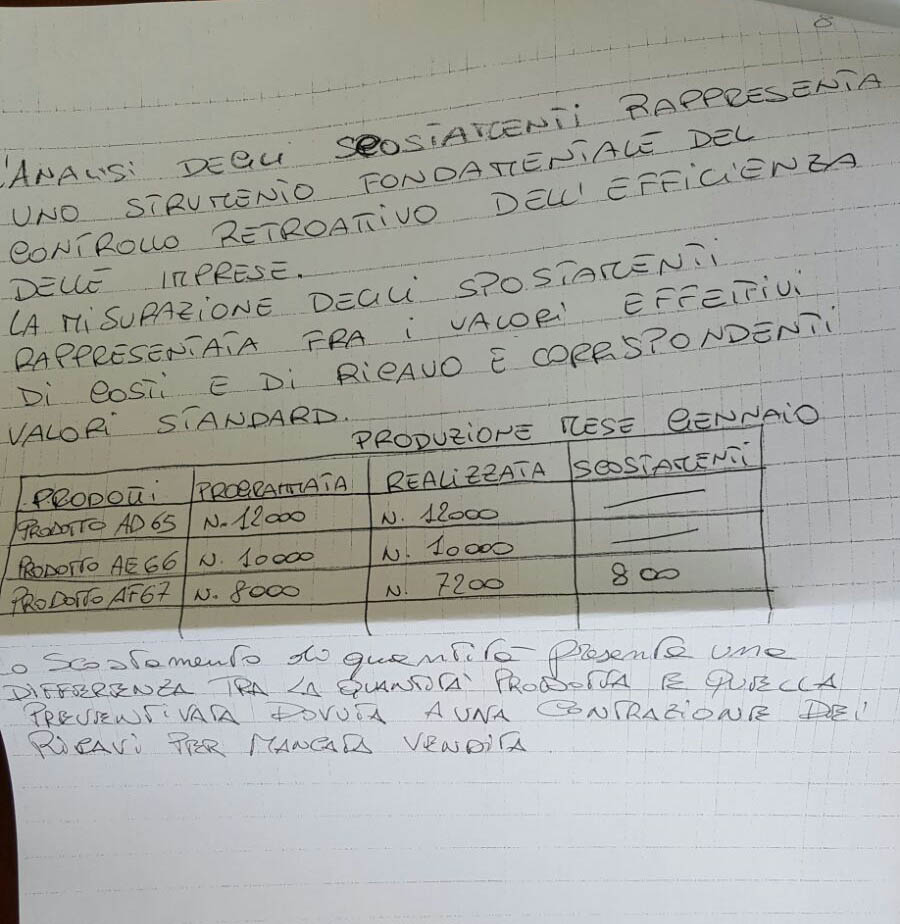 L'ANALISI DEGLI SCOSTAMENTI RAPPRESENTA
UNO STRUMENTO FONDAMENTALE DEL
CONTROLLO RETROATTIVO DELL'EFFICIENZA
DELLE IMPRESE.
LA MISURAZIONE DEGLI SPOSTAMENTI
RAPPRESENTATA FRA I VALORI EFFETTIVI
DI COSTI E DI RICAVO E CORRISPONDENTI
VALORI STANDARD.
PRODUZIONE MESE GENNAIO
PRODOTTI PROGRAMMATA REALIZZATA SCOSTAMENTI
PRODOTTO AD65 N. 12000 N. 12000
PRODOTTO AE66 N. 10000 N. 10000
PRODOTTO AF67 N. 8000 N. 7200 800
Lo Scostamento di quantità presenta una
DIFFERENZA TRA LA QUANTITA' PRODOTTA E QUELLA
PREVENTIVATA DOVUTA A UNA CONTRAZIONE DEI
RICAVI PER MANCATA VENDITA